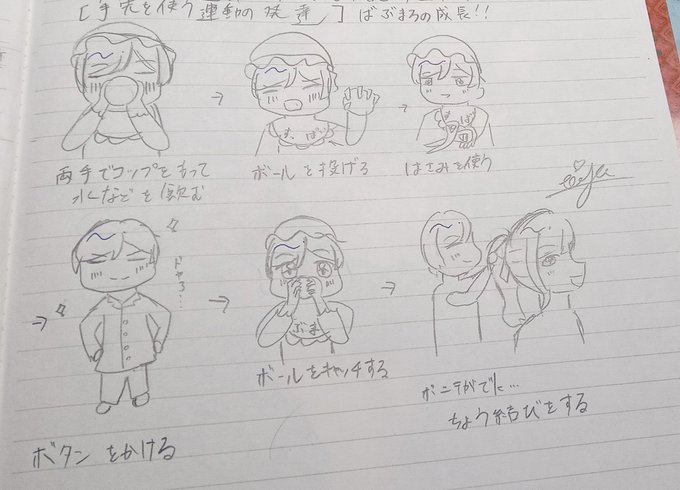 [手先を使う運動の発達] ばぶまろの成長!!
両手でコップをもって
水などを飲む
→
ボールを投げる
→
はさみを使う
→
ボタンをかける
ドヤァ…
→
ぶま
ボールをキャッチする
→
ちょう結びをする